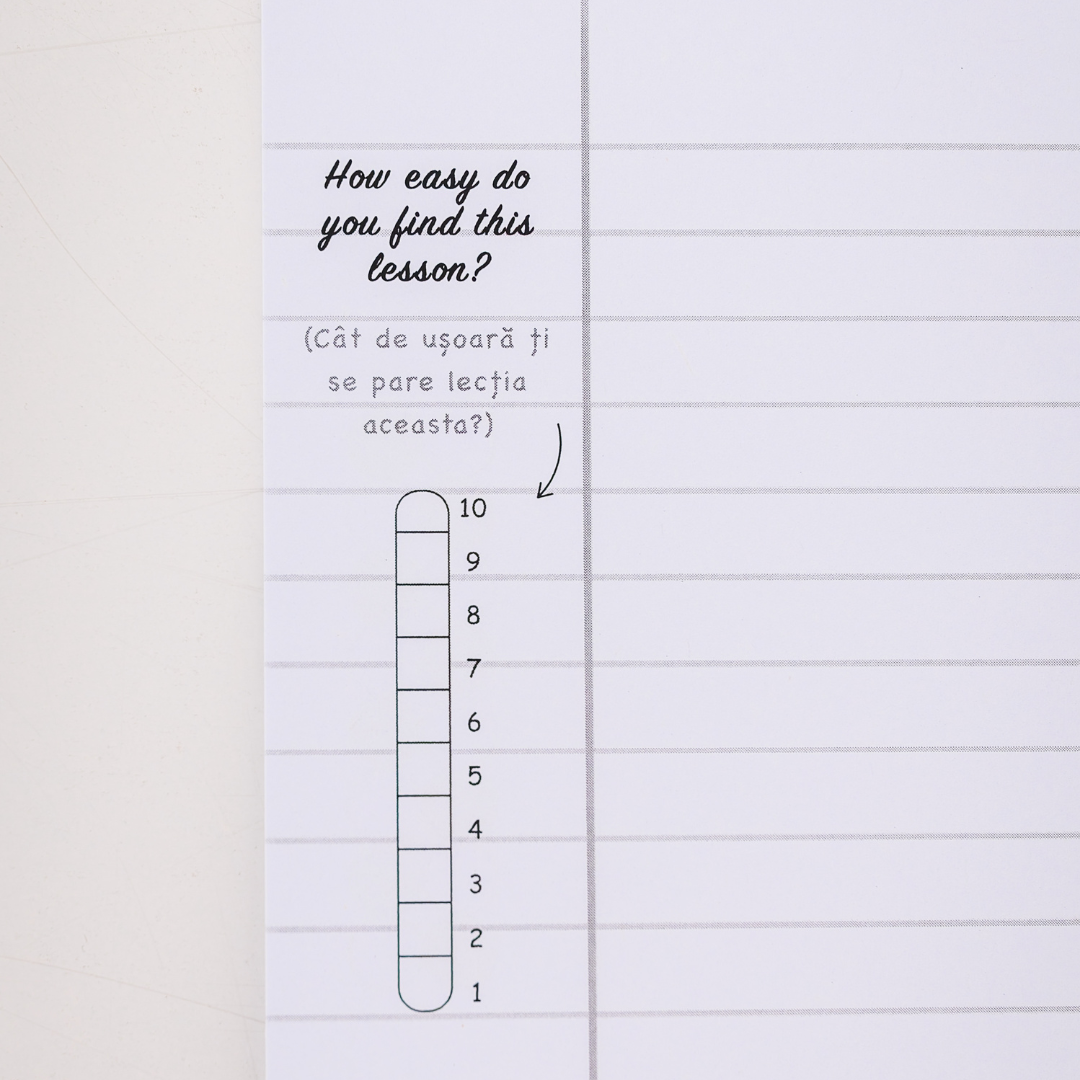 How easy do
you find this
lesson?
(Cât de ușoară ți
se pare lecția
aceasta?)
10
9
8
7
6
5
4
3
2
1